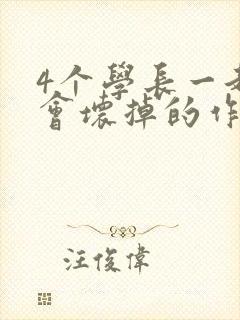 4个學長一起
會壞掉的作
汪俊偉